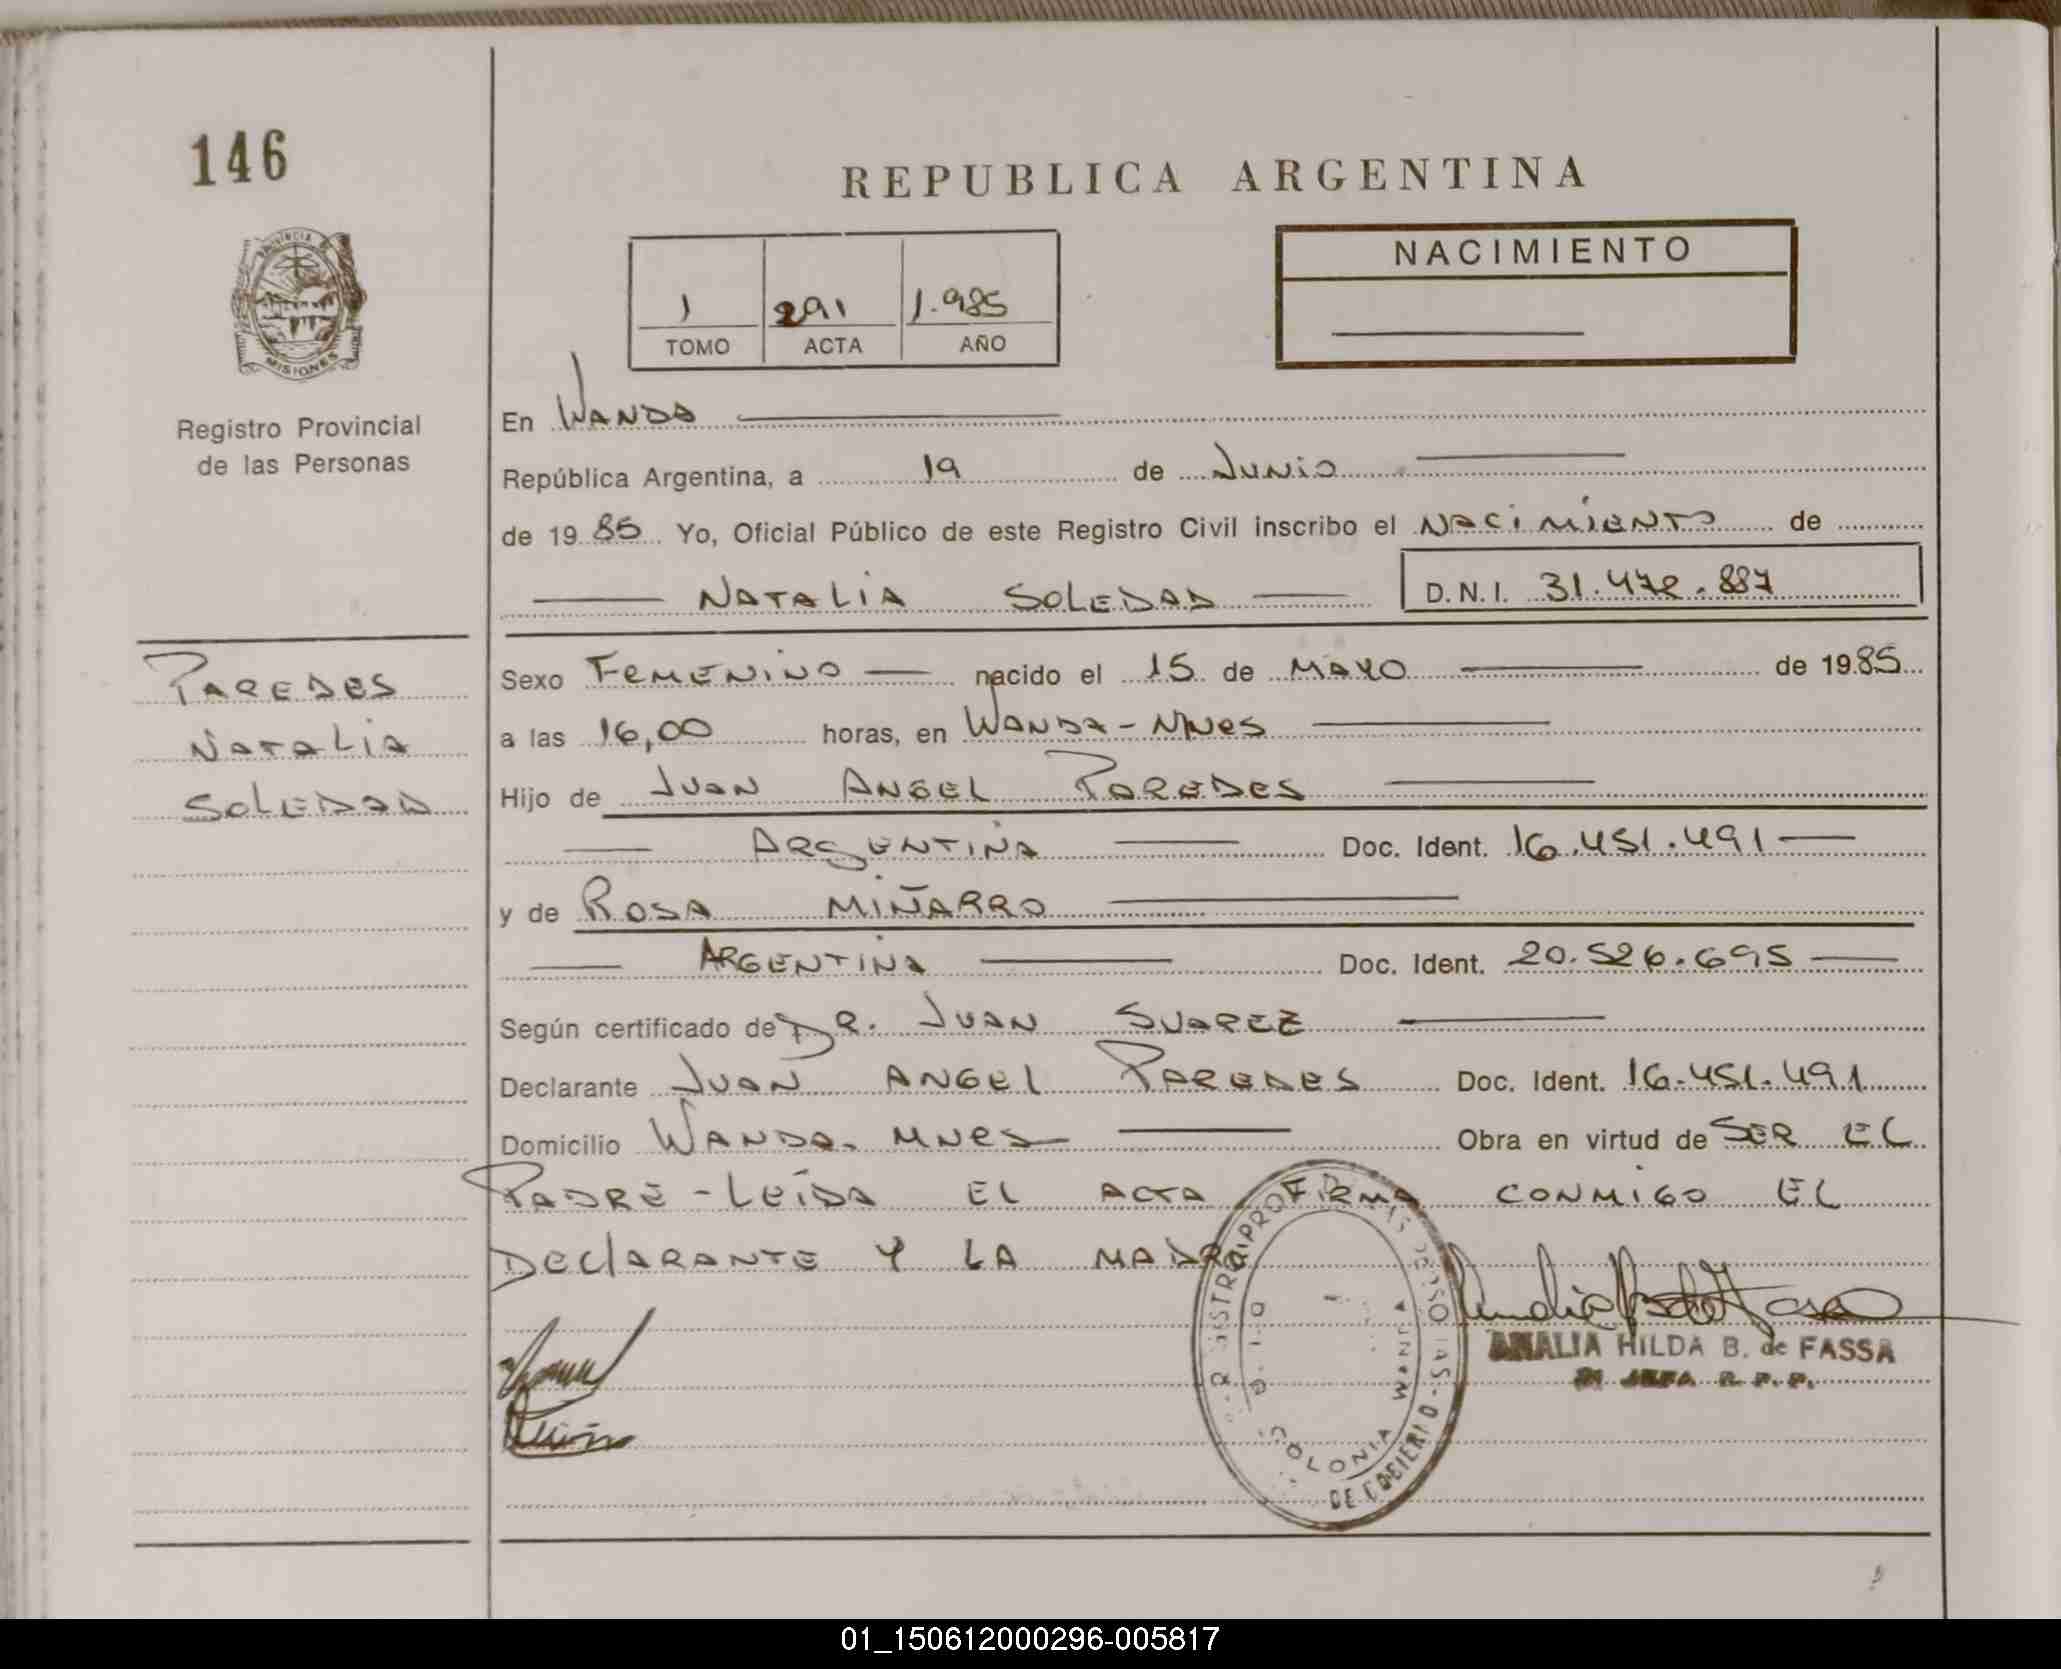 146
REPUBLICA ARGENTINA
PROVINCIA DE
MISIONES
Registro Provincial
de las Personas
1 291 1.985
TOMO ACTA AÑO
NACIMIENTO
En WANDA
República Argentina, a 19 de JUNIO
de 1985 Yo, Oficial Público de este Registro Civil inscribo el NACIMIENTO de
NATALIA SOLEDAD D.N.I. 31.472.887
PAREDES
NATALIA
SOLEDAD
Sexo FEMENINO nacido el 15 de MAYO de 1985
a las 16,00 horas, en WANDA - MNES
Hijo de JUAN ANGEL PAREDES
ARGENTINA Doc. Ident. 16.451.491
y de ROSA MIÑARRO
ARGENTINA Doc. Ident. 20.526.695
Según certificado de DR. JUAN SUAREZ
Declarante JUAN ANGEL PAREDES Doc. Ident. 16.451.491
Domicilio WANDA. MNES Obra en virtud de SER EL
PADRE - LEÍDA EL ACTA FIRMA CONMIGO EL
DECLARANTE Y LA MADRE
ANALIA HILDA B. de FASSA
JEFA R. P. P.
COLONIA WANDA
01_150612000296-005817